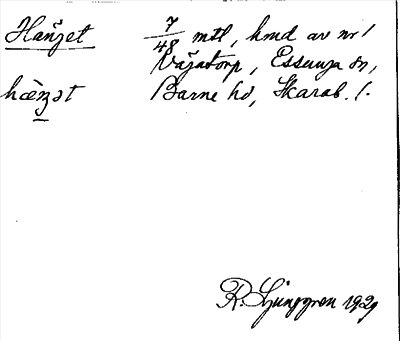 Hanget 7/48 mtl, hmd av nr 1
Vägatorp, Essunga sn,
hæ̀ŋət Barne hd, Skarab. l.
R. Ljunggren 1929